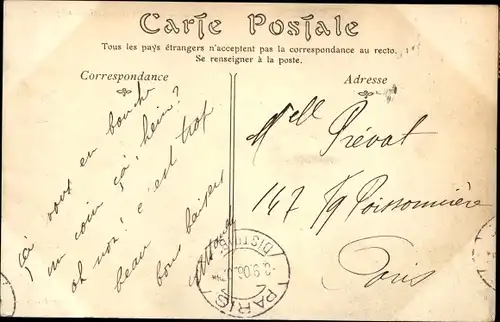 Carte Postale
Tous les pays étrangers n'acceptent pas la correspondance au recto.
Se renseigner à la poste.
Correspondance
Adresse
Ça vous en bouche
un coin ça, hein?
oh non! c'est trop
beau
bons baisers
Mell Prévot
147 Fg Poissonnière
Paris
PARIS
DISTRIB